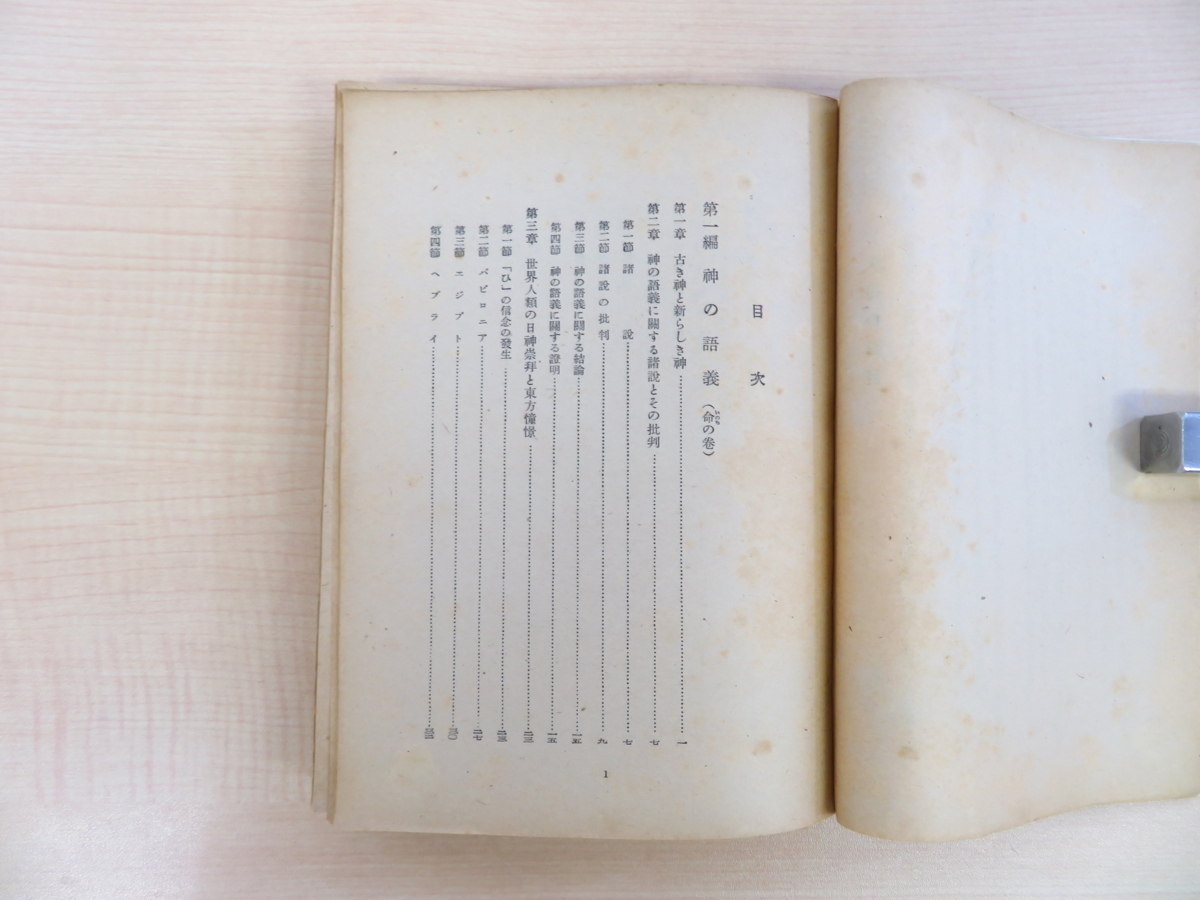 目次
第一編 神の語義(命の卷)
第一章 古き神と新らしき神……一
第二章 神の語義に關する諸說とその批判……七
第一節 諸說……七
第二節 諸說の批判……九
第三節 神の語義に關する結論……一五
第四節 神の語義に關する證明……一五
第三章 世界人類の日神崇拜と東方憧憬……二三
第一節 「ひ」の信念の發生……二三
第二節 バビロニア……二七
第三節 エジプト……三〇
第四節 ヘブライ
1